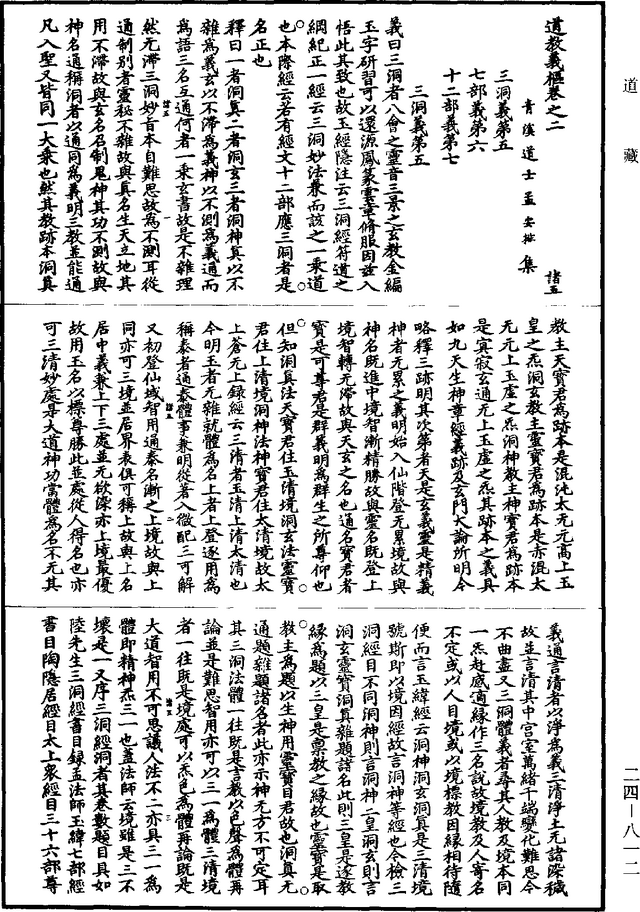 道教義樞卷之二
諸五
青溪道士孟安排集
三洞義第五
七部義第六
十二部義第七
三洞義第五
義曰三洞者八會之靈音三景之玄教金編
玉字研習可以還源鳳篆靈章脩服因茲入
悟此其致也故玉經隱注云三洞經符道之
綱紀正一經云三洞妙法兼而該之一乘道
也本際經云若有經文十二部應三洞者是
名正也
釋曰一者洞真二者洞玄三者洞神真以不
雜為義玄以不滯為義神以不測為義通而
為語三名互通何者一乘玄書故是不雜理
然无滯三洞妙旨本自難思故為不測耳從
通制別者靈秘不雜故與真名生天立地其
用不滯故與玄名召制鬼神其功不測故與
神名通稱洞者以通同為義明三教並能通
凡入聖又皆同一大乘也然其教跡本洞真
教主天寶君為跡本是混沌太无元高上玉
皇之炁洞玄教主靈寶君為跡本是赤混太
无元上玉虛之炁洞神教主神寶君為跡本
是冥寂玄通无上玉虛之炁其跡本之義具
如九天生神章經義跡及玄門大論所明今
略釋三跡明其次第者天是玄義靈是精義
神者无累之義明始入仙階登无累境故與
神名既進中境智漸精勝故與靈名既登上
境智轉无滯故與天玄之名也通名寶君者
寶是可尊君是群義明為群生之所尊仰也
但知洞真法天寶君住玉清境洞玄法靈寶
君住上清境洞神法神寶君住太清境故太
上蒼元上錄經云三清者玉清上清太清也
今明玉者无雜就體為名上者上登逐用為
稱泰者通泰體事兼明從著入微配三可解
又初登仙域智用通泰名漸之上境故與上
同亦可三境並居界表俱可稱上故與上名
居中義兼上下三處並无欲深亦上境最優
故用玉名以標尊勝此並處從人得名也亦
可三清妙處是大道神功當體為名不无其
義通言清者以淨為義三清淨土无諸染穢
故並言清其中宮室萬緒千端變化難思今
不曲盡又三洞體義者尋其人教及境本同
一炁赴感適緣作三名說故境教及人寄名
不定或以人目境或以境標教因緣相待隨
便而言玉緯經云洞神洞玄洞真是三清境
號斯即以境因經故言洞神等經也今檢三
洞經目不同洞神則言洞神三皇洞玄則言
洞玄靈寶洞真雜題諸名此則三皇是逐教
緣為題以三皇是稟教之緣故也靈寶是取
教主為題以生神用靈寶目君故也洞真无
通題雜題諸名者此亦示神无方不可定耳
其三洞法體一往既是言教以色聲為體再
論並是難思智用亦可以三一為體三清境
者一往既是境處可以炁色為體再論既是
大道智用不可思議人法不二亦具三一為
體即精神炁三一也孟法師云境雖是三不
壞是一又序三洞經洞者其卷數題目具如
陸先生三洞經書目錄孟法師玉緯七部經
書目陶隱居經目太上眾經目三十六部尊
道藏
二四－八一二